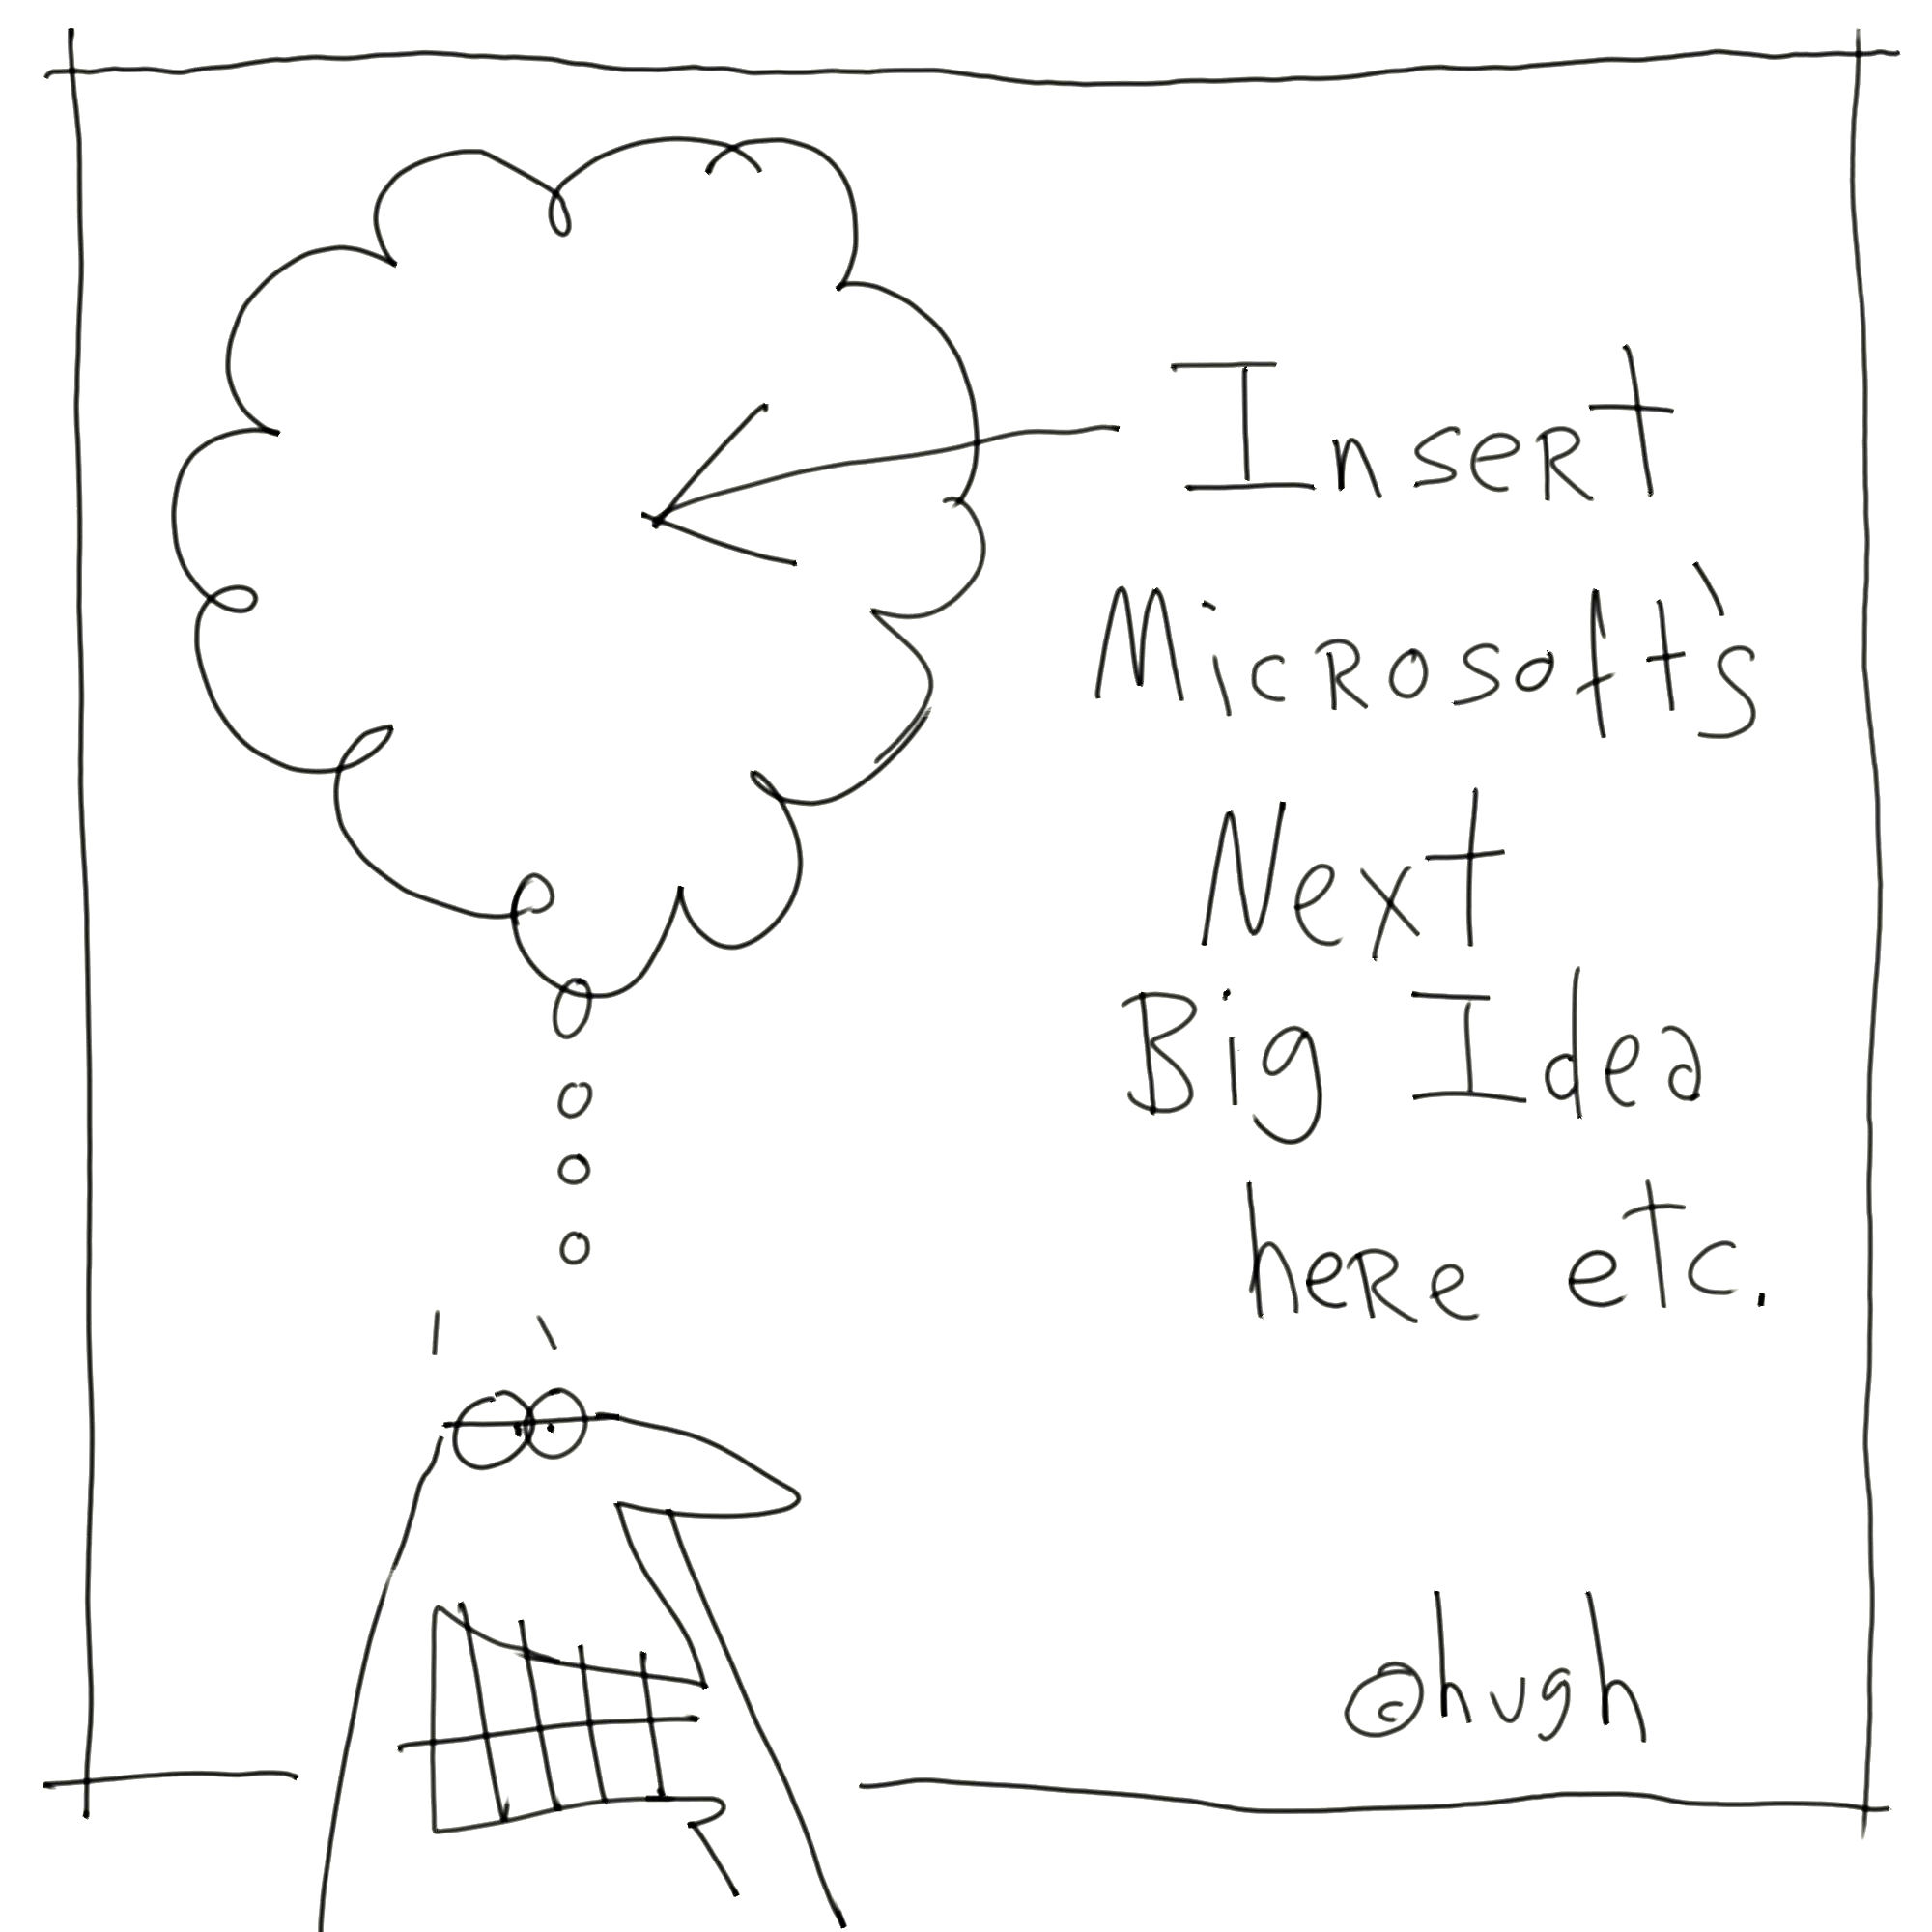 Insert
Microsoft's
Next
Big Idea
here etc.
@hugh